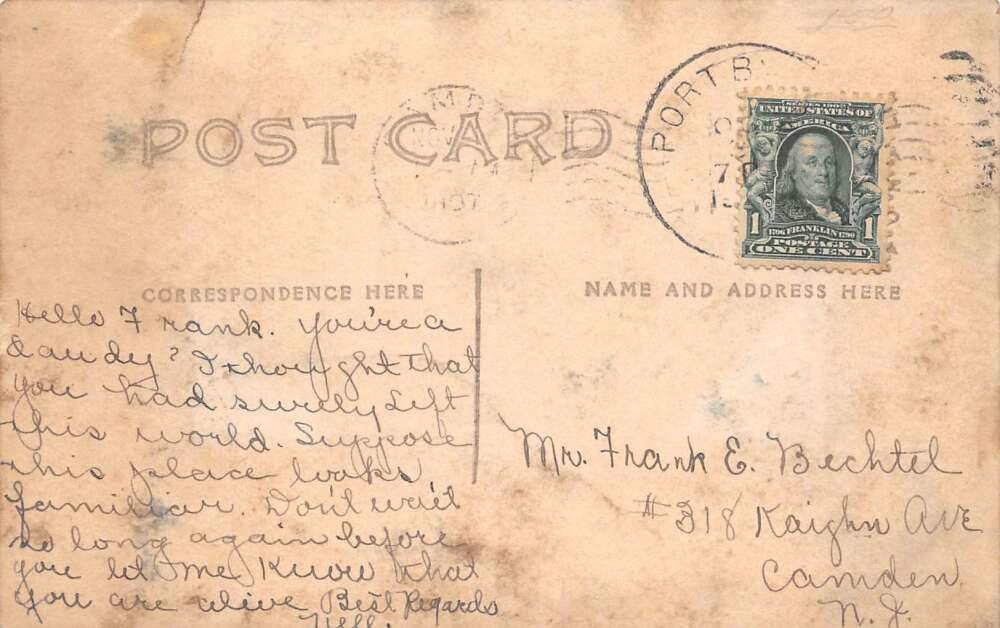 PORT B
POST CARD
SERIES 1902
UNITED STATES OF
AMERICA
1 1706 FRANKLIN 1790 1
POSTAGE
ONE CENT
CORRESPONDENCE HERE
NAME AND ADDRESS HERE
Hello Frank. You're a
dandy? I thought that
you had surely left
this world. Suppose
this place looks
familiar. Don't wait
so long again before
you let me know that
you are alive Best Regards
Nell.
Mr. Frank E. Bechtel
#318 Kaighn Ave
Camden
N. J.